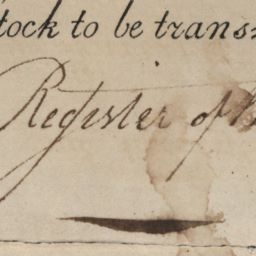 tock to be trans
Register of